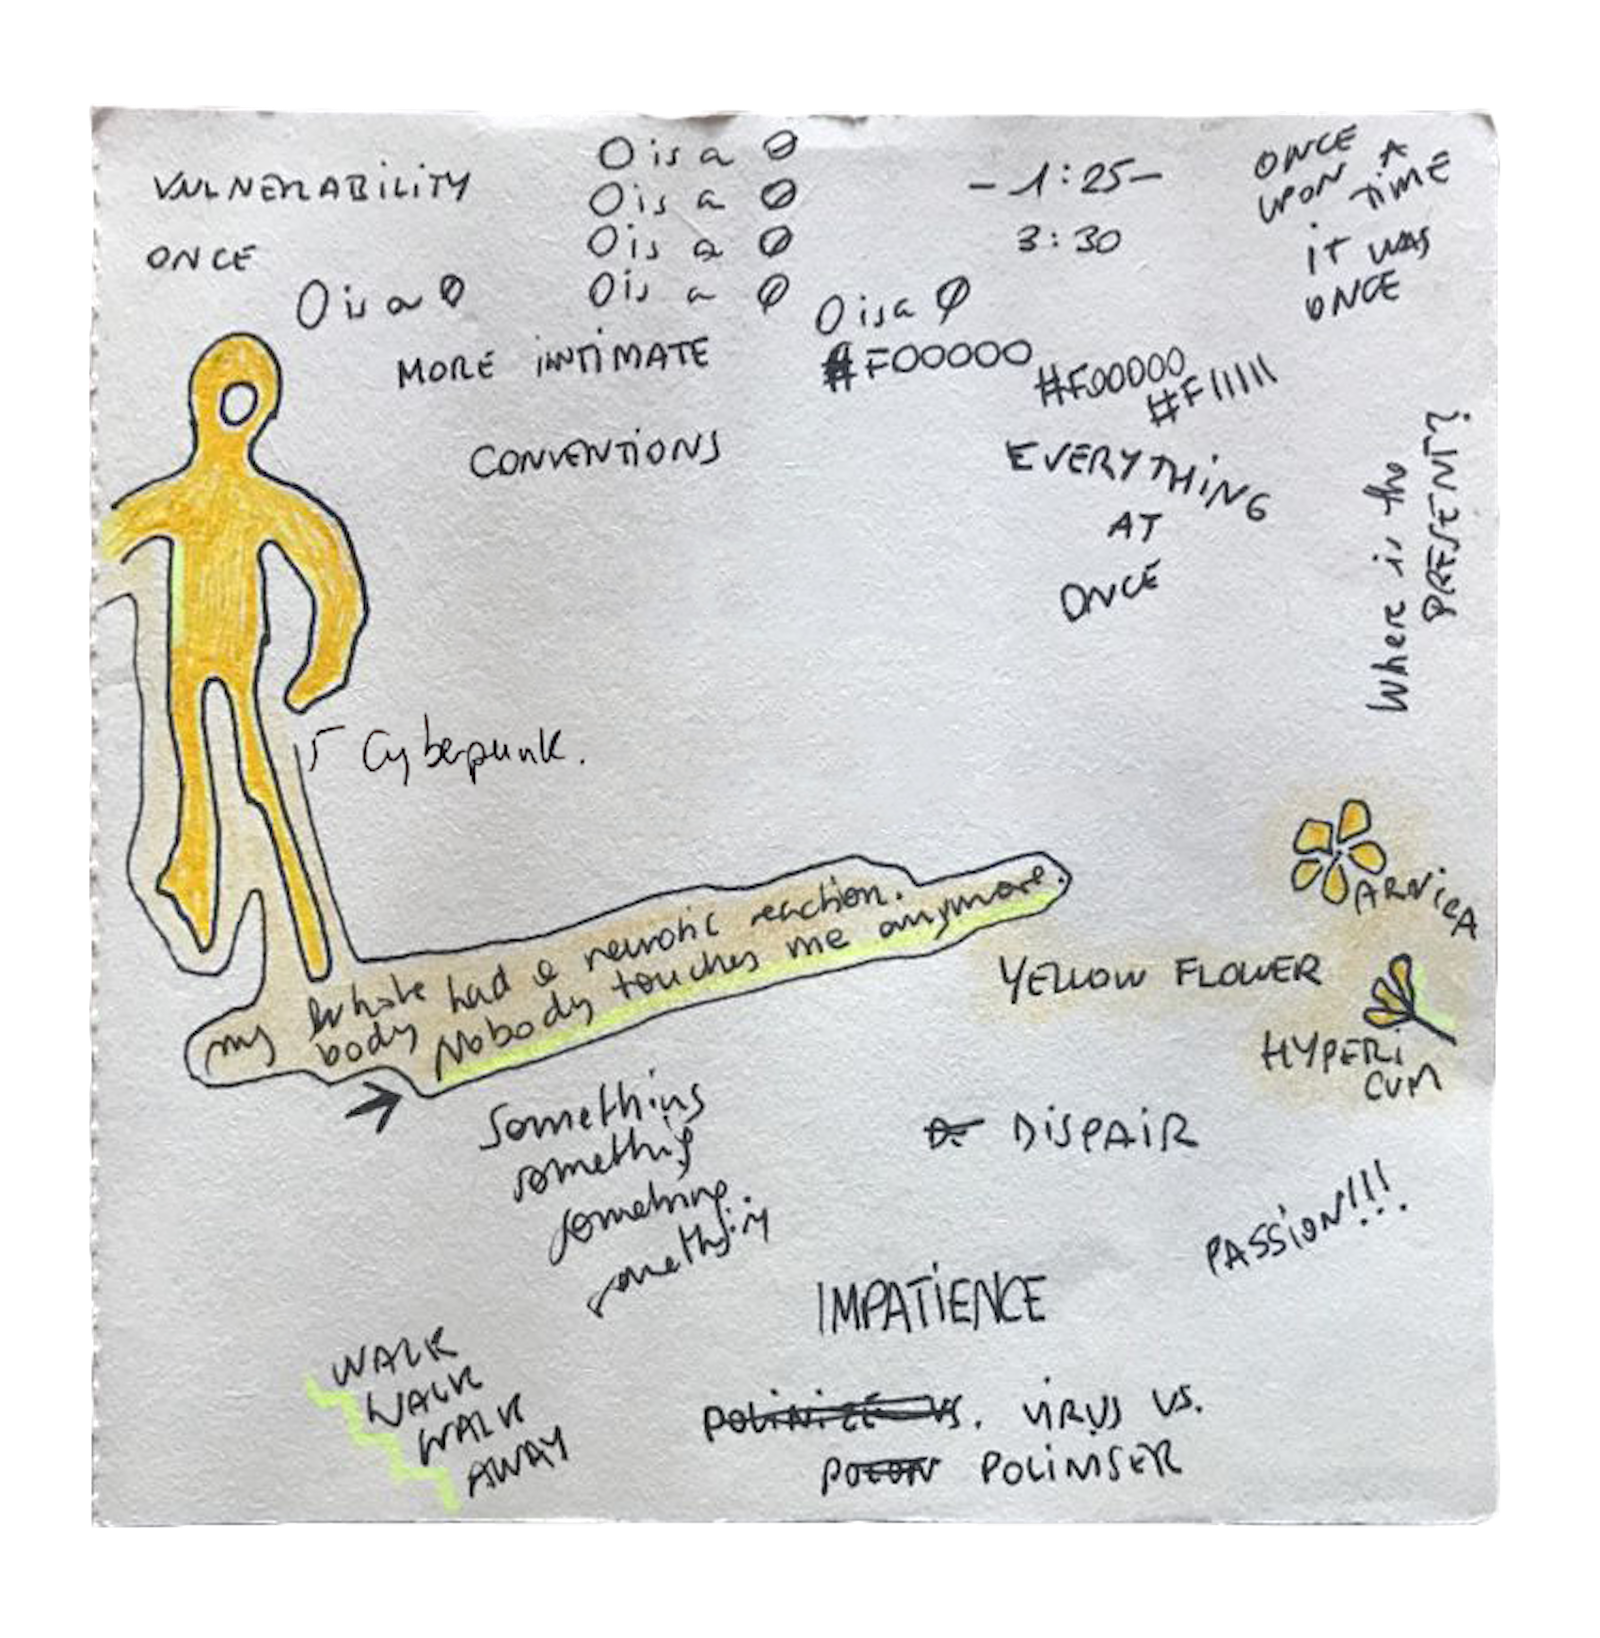 VULNERABILITY
ONCE
O is a Ø
O is a Ø
O is a Ø
O is a Ø
O is a Ø
O is a Ø
– 1:25 –
3:30
ONCE
UPON A
TIME
IT WAS
ONCE
MORE INTIMATE
#F00000
#F00000
#F11111
CONVENTIONS
EVERYTHING
AT
ONCE
Where is the
PRESENT?
Cyberpunk.
my whole
body had a neurotic reaction.
Nobody touches me anymore.
ARNICA
YELLOW FLOWER
HYPERI
CUM
Something
something
something.
something
DISPAIR
PASSION!!!
IMPATIENCE
WALK
WALK
WALK
AWAY
VS. VIRUS VS.
POLINSER